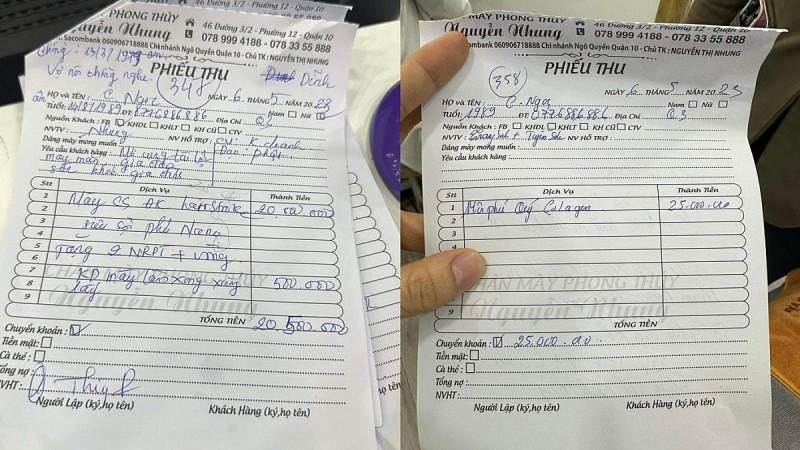 PHONG THỦY
Nguyễn Nhung
46 Đường 3/2 - Phường 12 - Quận 10
078 999 4188 - 078 33 55 888
Sacombank 060906718888 Chi nhánh Ngô Quyền Quận 10 - Chủ TK: NGUYỄN THỊ NHUNG
PHIẾU THU
348
NGÀY 6 THÁNG 5 NĂM 2023
HỌ và TÊN : C. Ngọc Nam Nữ
TUỔI: ĐT: 0776886886 Địa Chỉ Q3
Nguồn Khách : FB KHDL KHLT KH CŨ CTV
NVTV : Nhung NV HỖ TRỢ :
Dáng mày mong muốn :
Yêu cầu khách hàng :
may mắn gia đạo
Stt Dịch Vụ Thành Tiền
1 Mày CS ĐK hairstroke 20.000.000
2
3
4
5 Tặng 2 NRPT + vòng
6
7 500.000
8
9
CHÂN MÀY PHONG THỦY
Nguyễn Nhung
TỔNG TIỀN 20.500.000
Chuyển khoản :
Tiền mặt:
Cà thẻ :
Tổng nợ :
NVHT :
Người Lập (ký,họ tên) Khách Hàng (ký,họ tên)
MÀY PHONG THỦY
Nguyễn Nhung
46 Đường 3/2 - Phường 12 - Quận 10
078 999 4188 - 078 33 55 888
Sacombank 060906718888 Chi nhánh Ngô Quyền Quận 10 - Chủ TK: NGUYỄN THỊ NHUNG
PHIẾU THU
358
NGÀY 6 THÁNG 5 NĂM 2023
HỌ và TÊN : C. Ngọc Nam Nữ
TUỔI: 1989 ĐT: 0776886886 Địa Chỉ Q3
Nguồn Khách : FB KHDL KHLT KH CŨ CTV
NVTV : NV HỖ TRỢ :
Dáng mày mong muốn :
Yêu cầu khách hàng :
Stt Dịch Vụ Thành Tiền
1 phú Quý Colagen 25.000.000
2
3
4
9
CHÂN MÀY PHONG THỦY
Nguyễn Nhung
TỔNG TIỀN
Chuyển khoản : 25.000.000
Tiền mặt:
Cà thẻ :
Tổng nợ :
NVHT :
Người Lập (ký,họ tên) Khách Hàng (ký,họ tên)